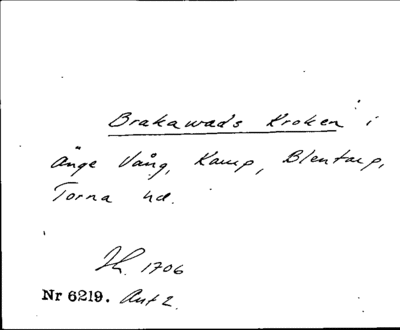 Brakawads Kroken i
Änge Vång, Kamp, Blentarp,
Torna hd.
Jh. 1706
Nr 6219. Ant 2.